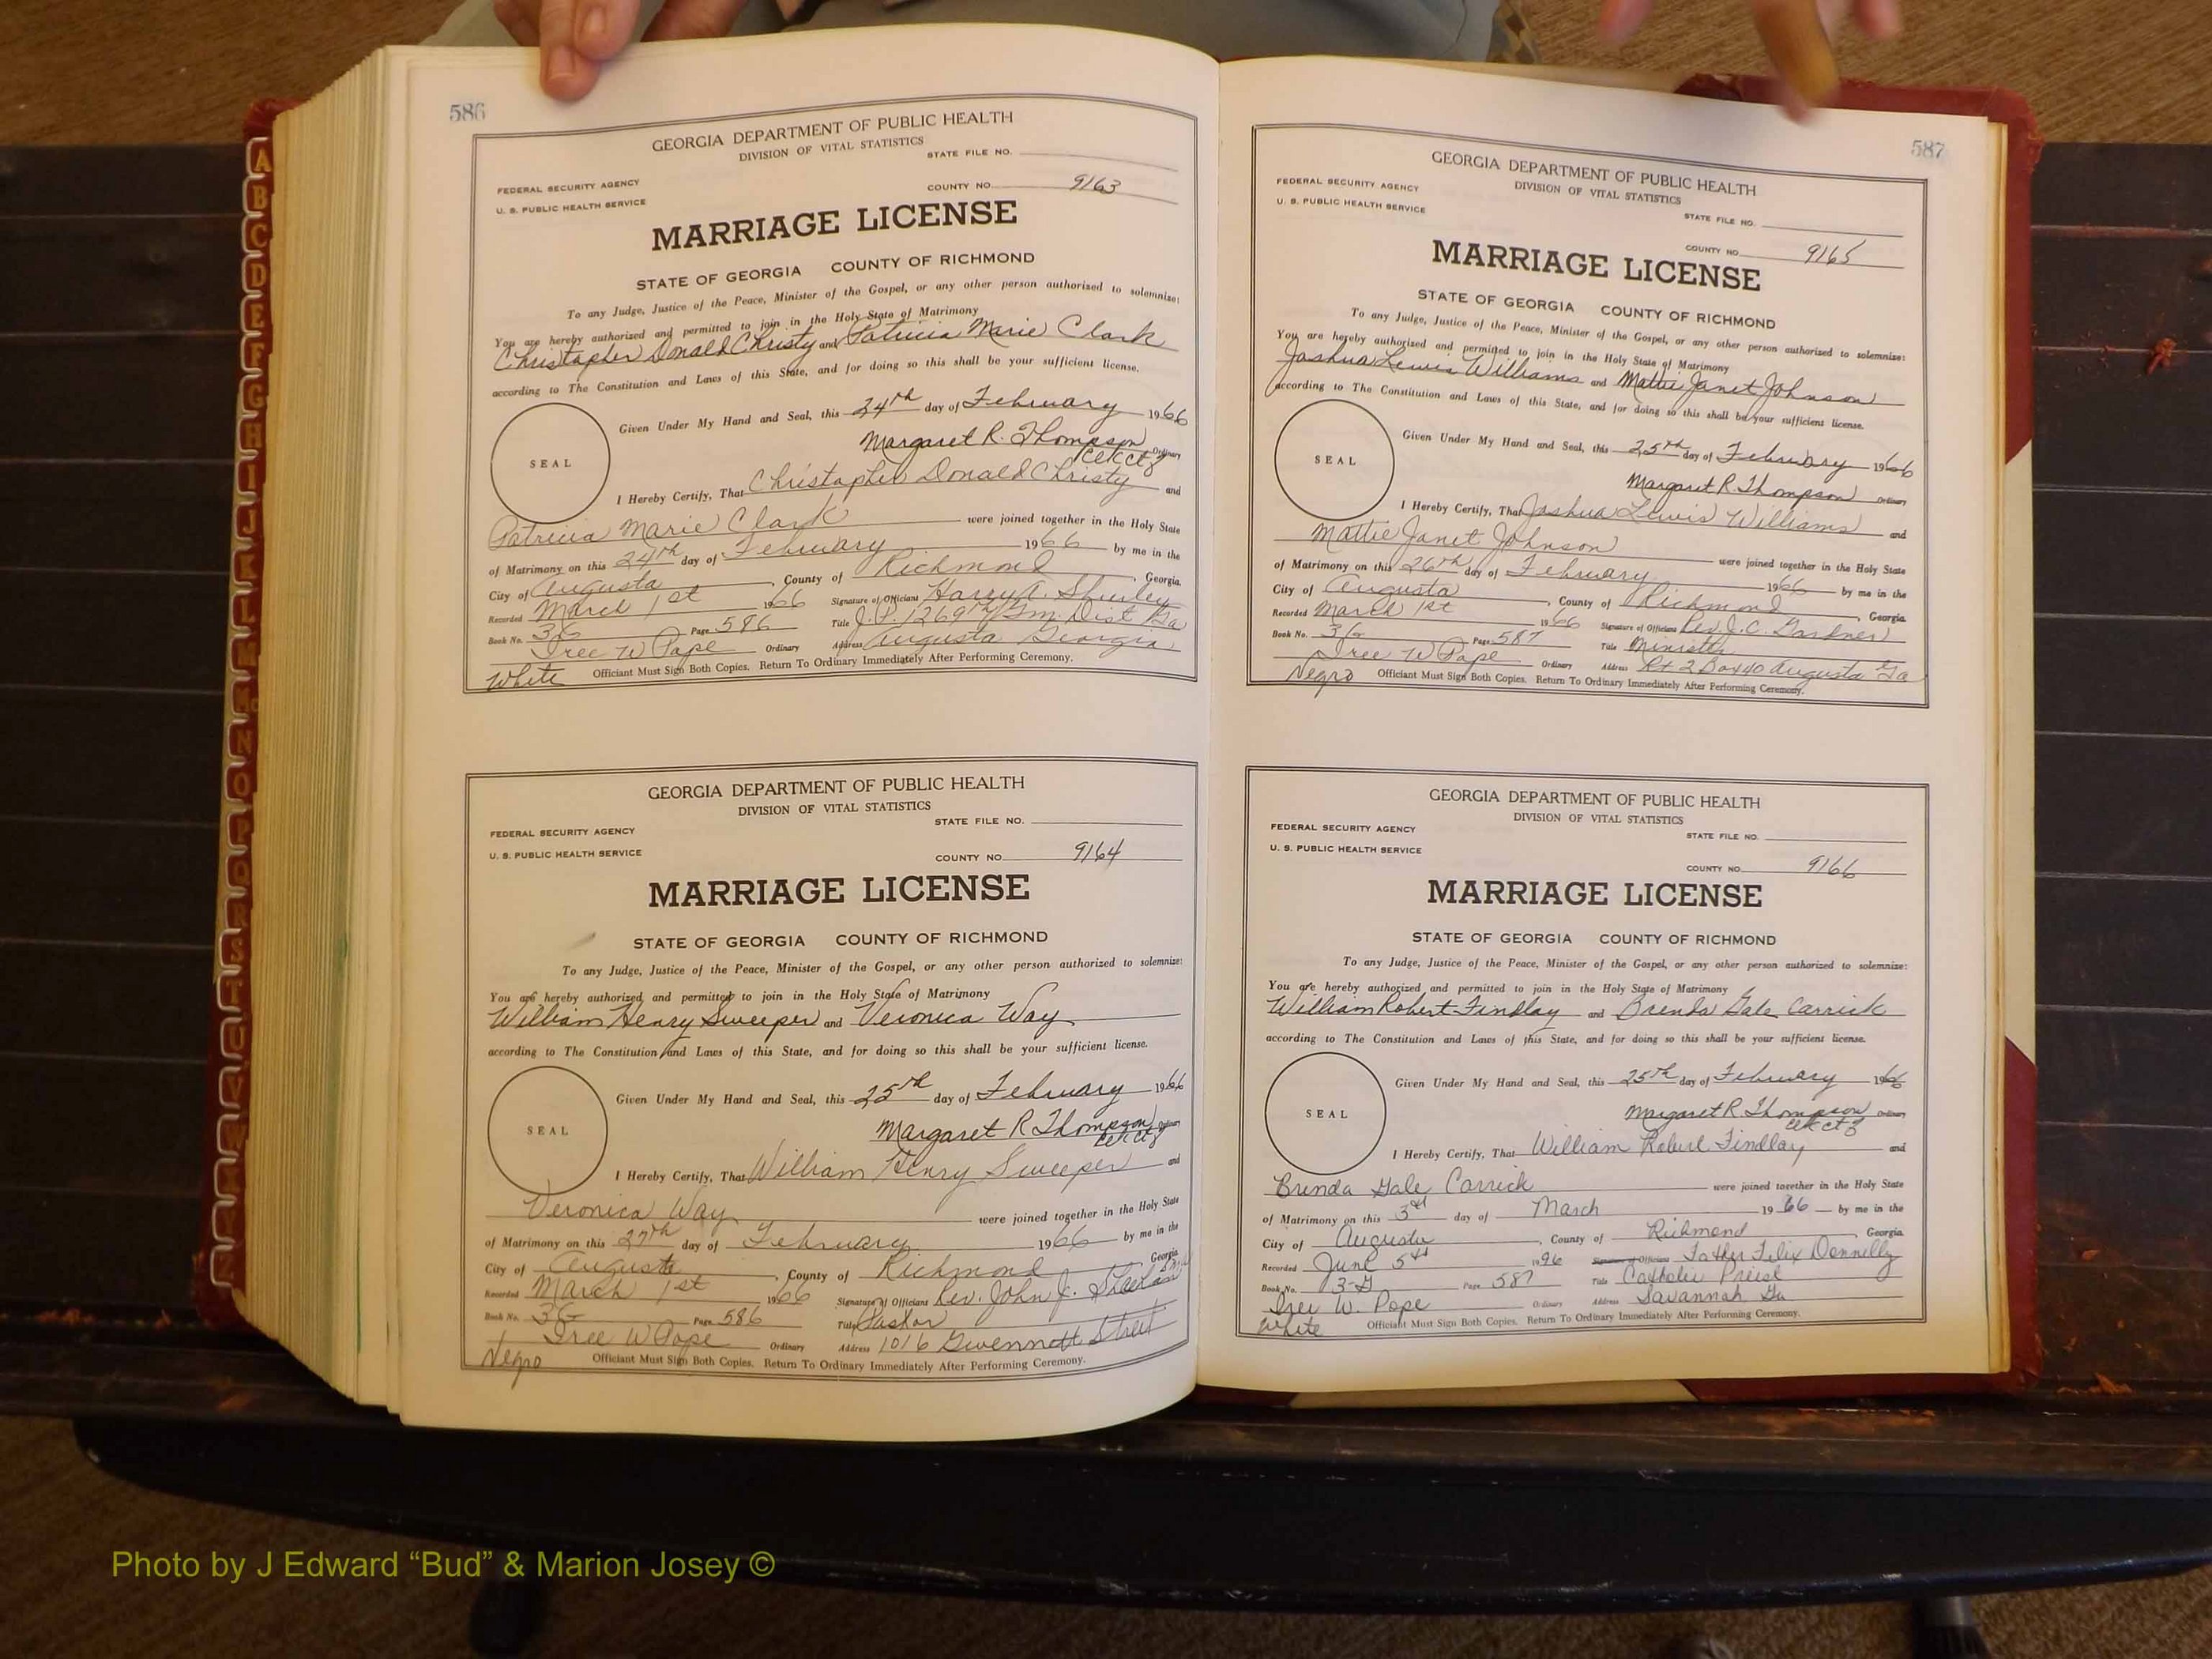 586
GEORGIA DEPARTMENT OF PUBLIC HEALTH
DIVISION OF VITAL STATISTICS
STATE FILE NO.
FEDERAL SECURITY AGENCY
U. S. PUBLIC HEALTH SERVICE
COUNTY NO. 9163
MARRIAGE LICENSE
STATE OF GEORGIA COUNTY OF RICHMOND
To any Judge, Justice of the Peace, Minister of the Gospel, or any other person authorized to solemnize:
You are hereby authorized and permitted to join in the Holy State of Matrimony
Christopher Donald Christy and Patricia Marie Clark
according to The Constitution and Laws of this State, and for doing so this shall be your sufficient license.
Given Under My Hand and Seal, this 24th day of February 1966
Margaret R. Thompson Ordinary
SEAL
I Hereby Certify, That Christopher Donald Christy and
Patricia Marie Clark were joined together in the Holy State
of Matrimony on this 24th day of February 1966 by me in the
City of Augusta, County of Richmond, Georgia.
Recorded March 1st 1966 Signature of Officiant Harry A. Shurley
Book No. 3G Page 586 Title J. P. 1269th Gm. Dist Ga
Iree W Pope Ordinary Address Augusta Georgia
White Officiant Must Sign Both Copies. Return To Ordinary Immediately After Performing Ceremony.
GEORGIA DEPARTMENT OF PUBLIC HEALTH
DIVISION OF VITAL STATISTICS
STATE FILE NO.
FEDERAL SECURITY AGENCY
U. S. PUBLIC HEALTH SERVICE
COUNTY NO. 9164
MARRIAGE LICENSE
STATE OF GEORGIA COUNTY OF RICHMOND
To any Judge, Justice of the Peace, Minister of the Gospel, or any other person authorized to solemnize:
You are hereby authorized and permitted to join in the Holy State of Matrimony
William Henry Sweeper and Veronica Way
according to The Constitution and Laws of this State, and for doing so this shall be your sufficient license.
Given Under My Hand and Seal, this 25th day of February 1966
Margaret R Thompson Ordinary
SEAL
I Hereby Certify, That William Henry Sweeper and
Veronica Way were joined together in the Holy State
of Matrimony on this 27th day of February 1966 by me in the
City of Augusta, County of Richmond Georgia
Recorded March 1st 1966 Signature of Officiant Rev. John J.
Book No. 3G Page 586 Title Pastor
Iree W Pope Ordinary Address 1016 Gwennett Street
Negro Officiant Must Sign Both Copies. Return To Ordinary Immediately After Performing Ceremony.
587
GEORGIA DEPARTMENT OF PUBLIC HEALTH
DIVISION OF VITAL STATISTICS
FEDERAL SECURITY AGENCY
U. S. PUBLIC HEALTH SERVICE
STATE FILE NO.
COUNTY NO. 9165
MARRIAGE LICENSE
STATE OF GEORGIA COUNTY OF RICHMOND
To any Judge, Justice of the Peace, Minister of the Gospel, or any other person authorized to solemnize:
You are hereby authorized and permitted to join in the Holy State of Matrimony
Joshua Lewis Williams and Mattie Janet Johnson
according to The Constitution and Laws of this State, and for doing so this shall be your sufficient license.
Given Under My Hand and Seal, this 25th day of February 1966
Margaret R. Thompson Ordinary
SEAL
I Hereby Certify, That Joshua Lewis Williams and
Mattie Janet Johnson were joined together in the Holy State
of Matrimony on this 26th day of February 1966 by me in the
City of Augusta, County of Richmond, Georgia.
Recorded March 1st 1966 Signature of Officiant Rev J. C. Gardner
Book No. 3G Page 587 Title Ministry
Iree W Pope Ordinary Address Rt 2 Box 40 Augusta Ga
Negro Officiant Must Sign Both Copies. Return To Ordinary Immediately After Performing Ceremony.
GEORGIA DEPARTMENT OF PUBLIC HEALTH
DIVISION OF VITAL STATISTICS
FEDERAL SECURITY AGENCY
STATE FILE NO.
U. S. PUBLIC HEALTH SERVICE
COUNTY NO. 9166
MARRIAGE LICENSE
STATE OF GEORGIA COUNTY OF RICHMOND
To any Judge, Justice of the Peace, Minister of the Gospel, or any other person authorized to solemnize:
You are hereby authorized and permitted to join in the Holy State of Matrimony
William Robert Findlay and Brenda Gale Carrick
according to The Constitution and Laws of this State, and for doing so this shall be your sufficient license.
Given Under My Hand and Seal, this 25th day of February 1966
Margaret R. Thompson Ordinary
SEAL
I Hereby Certify, That William Robert Findlay and
Brenda Gale Carrick were joined together in the Holy State
of Matrimony on this 3rd day of March 1966 by me in the
City of Augusta, County of Richmond, Georgia
Recorded June 5th 1996 Signature of Officiant Father Felix Donnelly
Book No. 3-G Page 587 Title Catholic Priest
Iree W. Pope Ordinary Address Savannah Ga
White Officiant Must Sign Both Copies. Return To Ordinary Immediately After Performing Ceremony.
Photo by J Edward “Bud” & Marion Josey ©